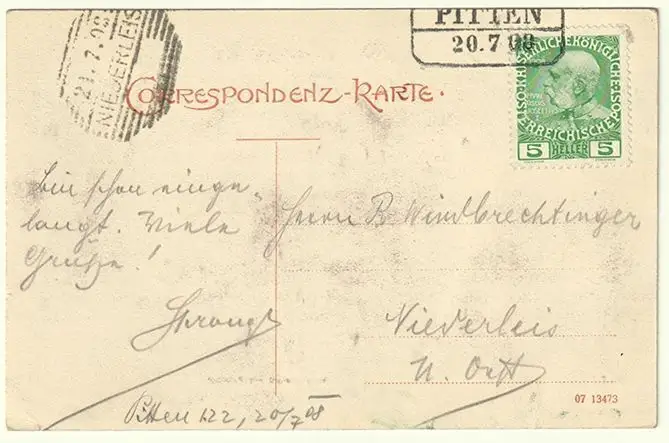 21.7.08
NIEDERLEIS
PITTEN
20.7 08
CORRESPONDENZ-KARTE.
KAISERLICHE KÖNIGLICHE
ÖSTERREICHISCHE POST
5 HELLER 5
bin schon einge-
langt. Viele
Grüße!
Herrn R Windbrechtinger
Niederleis
N. Oest
Pitten 122, 20/7 08
07 13473